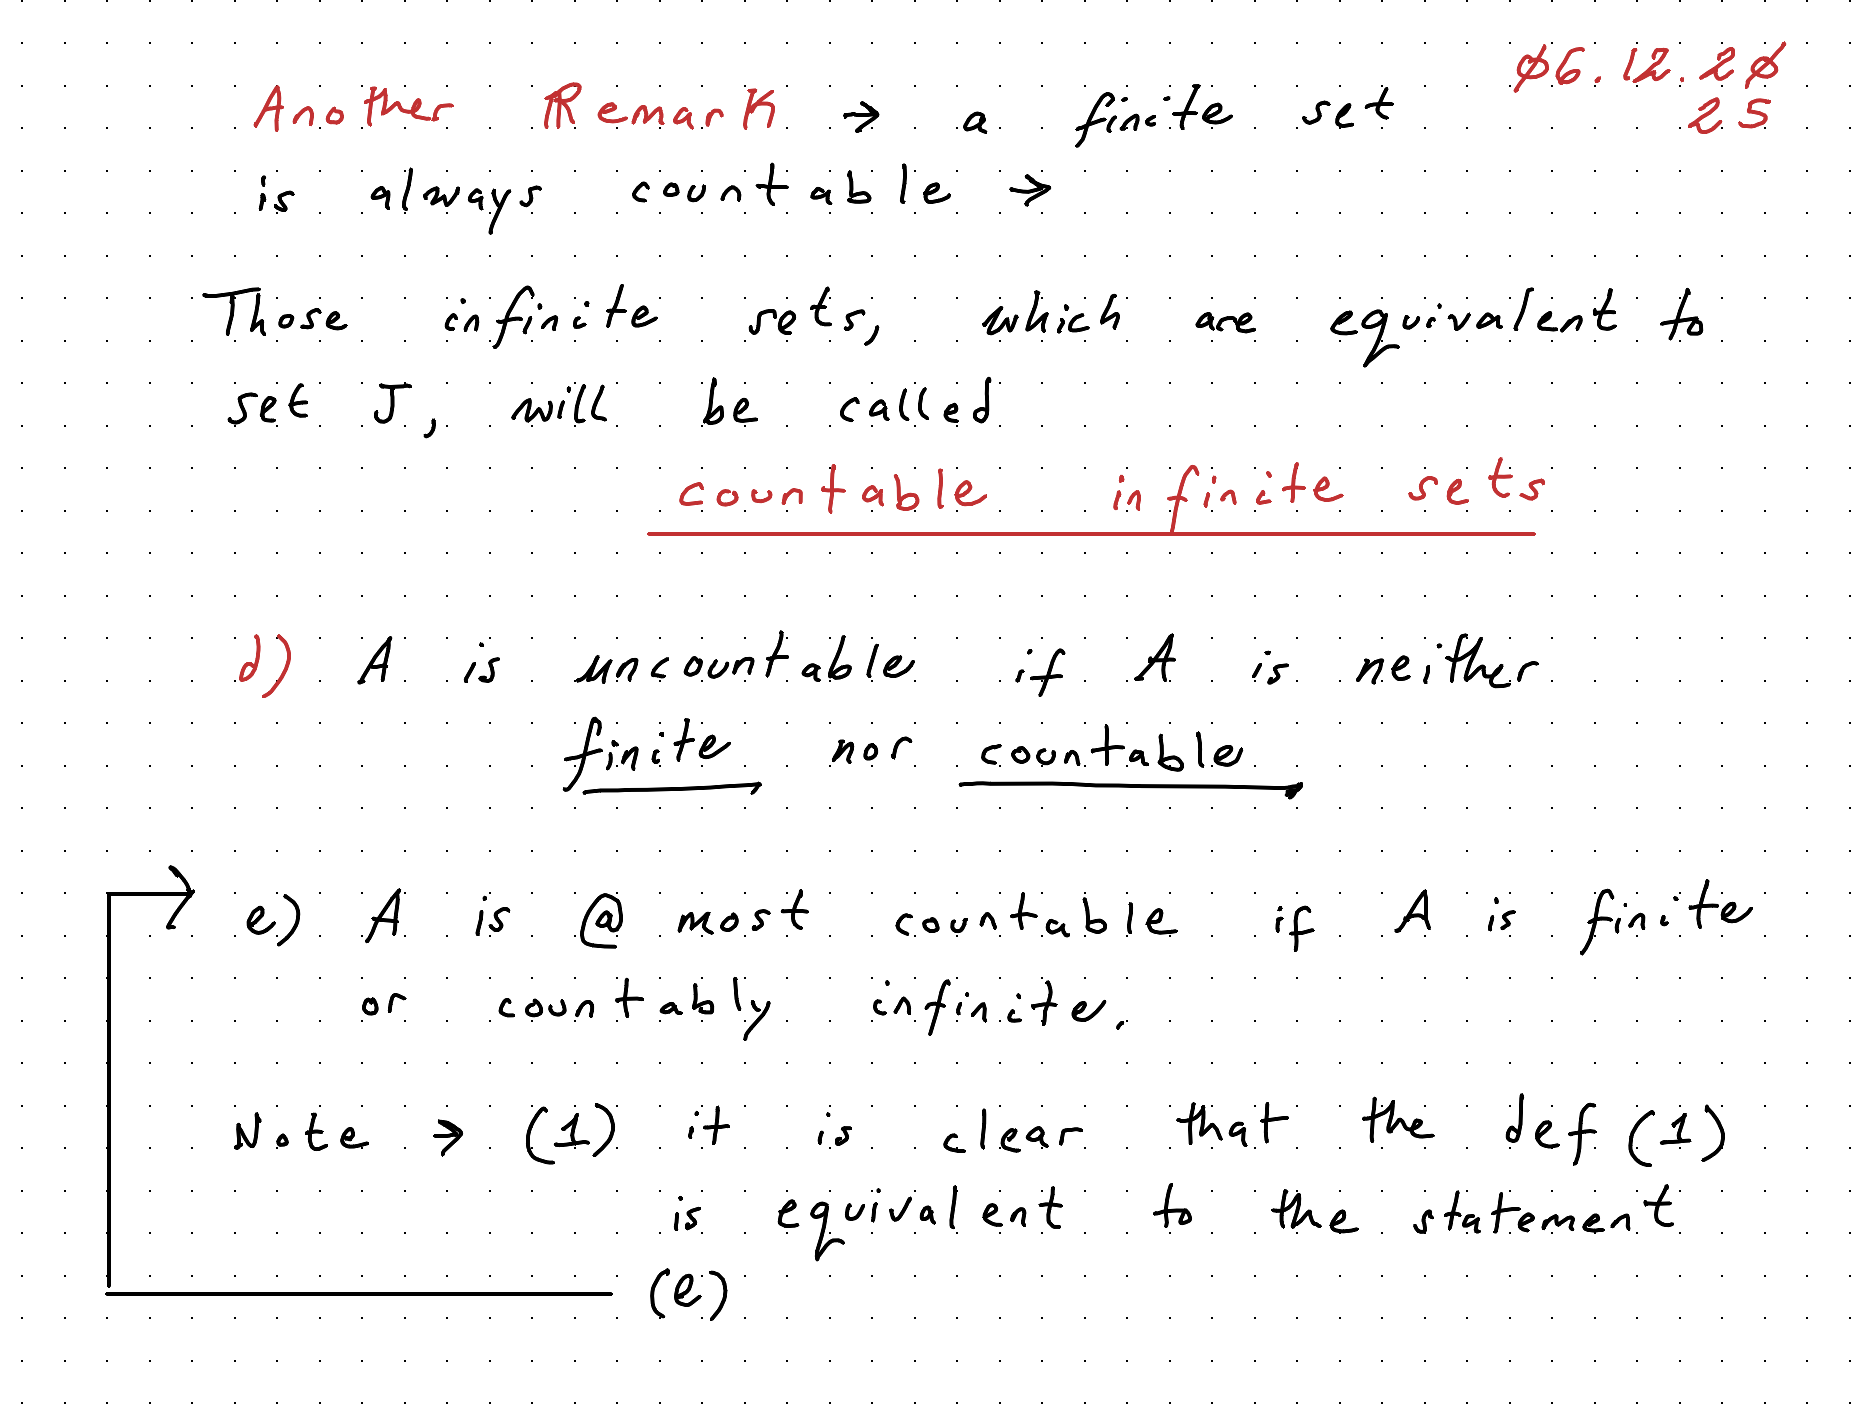 06.12.20
25
Another Remark → a finite set
is always countable →
Those infinite sets, which are equivalent to
set J, will be called
countable infinite sets
d) A is uncountable if A is neither
finite nor countable
e) A is @ most countable if A is finite
or countably infinite.
Note → (1) it is clear that the def (1)
is equivalent to the statement
(e)